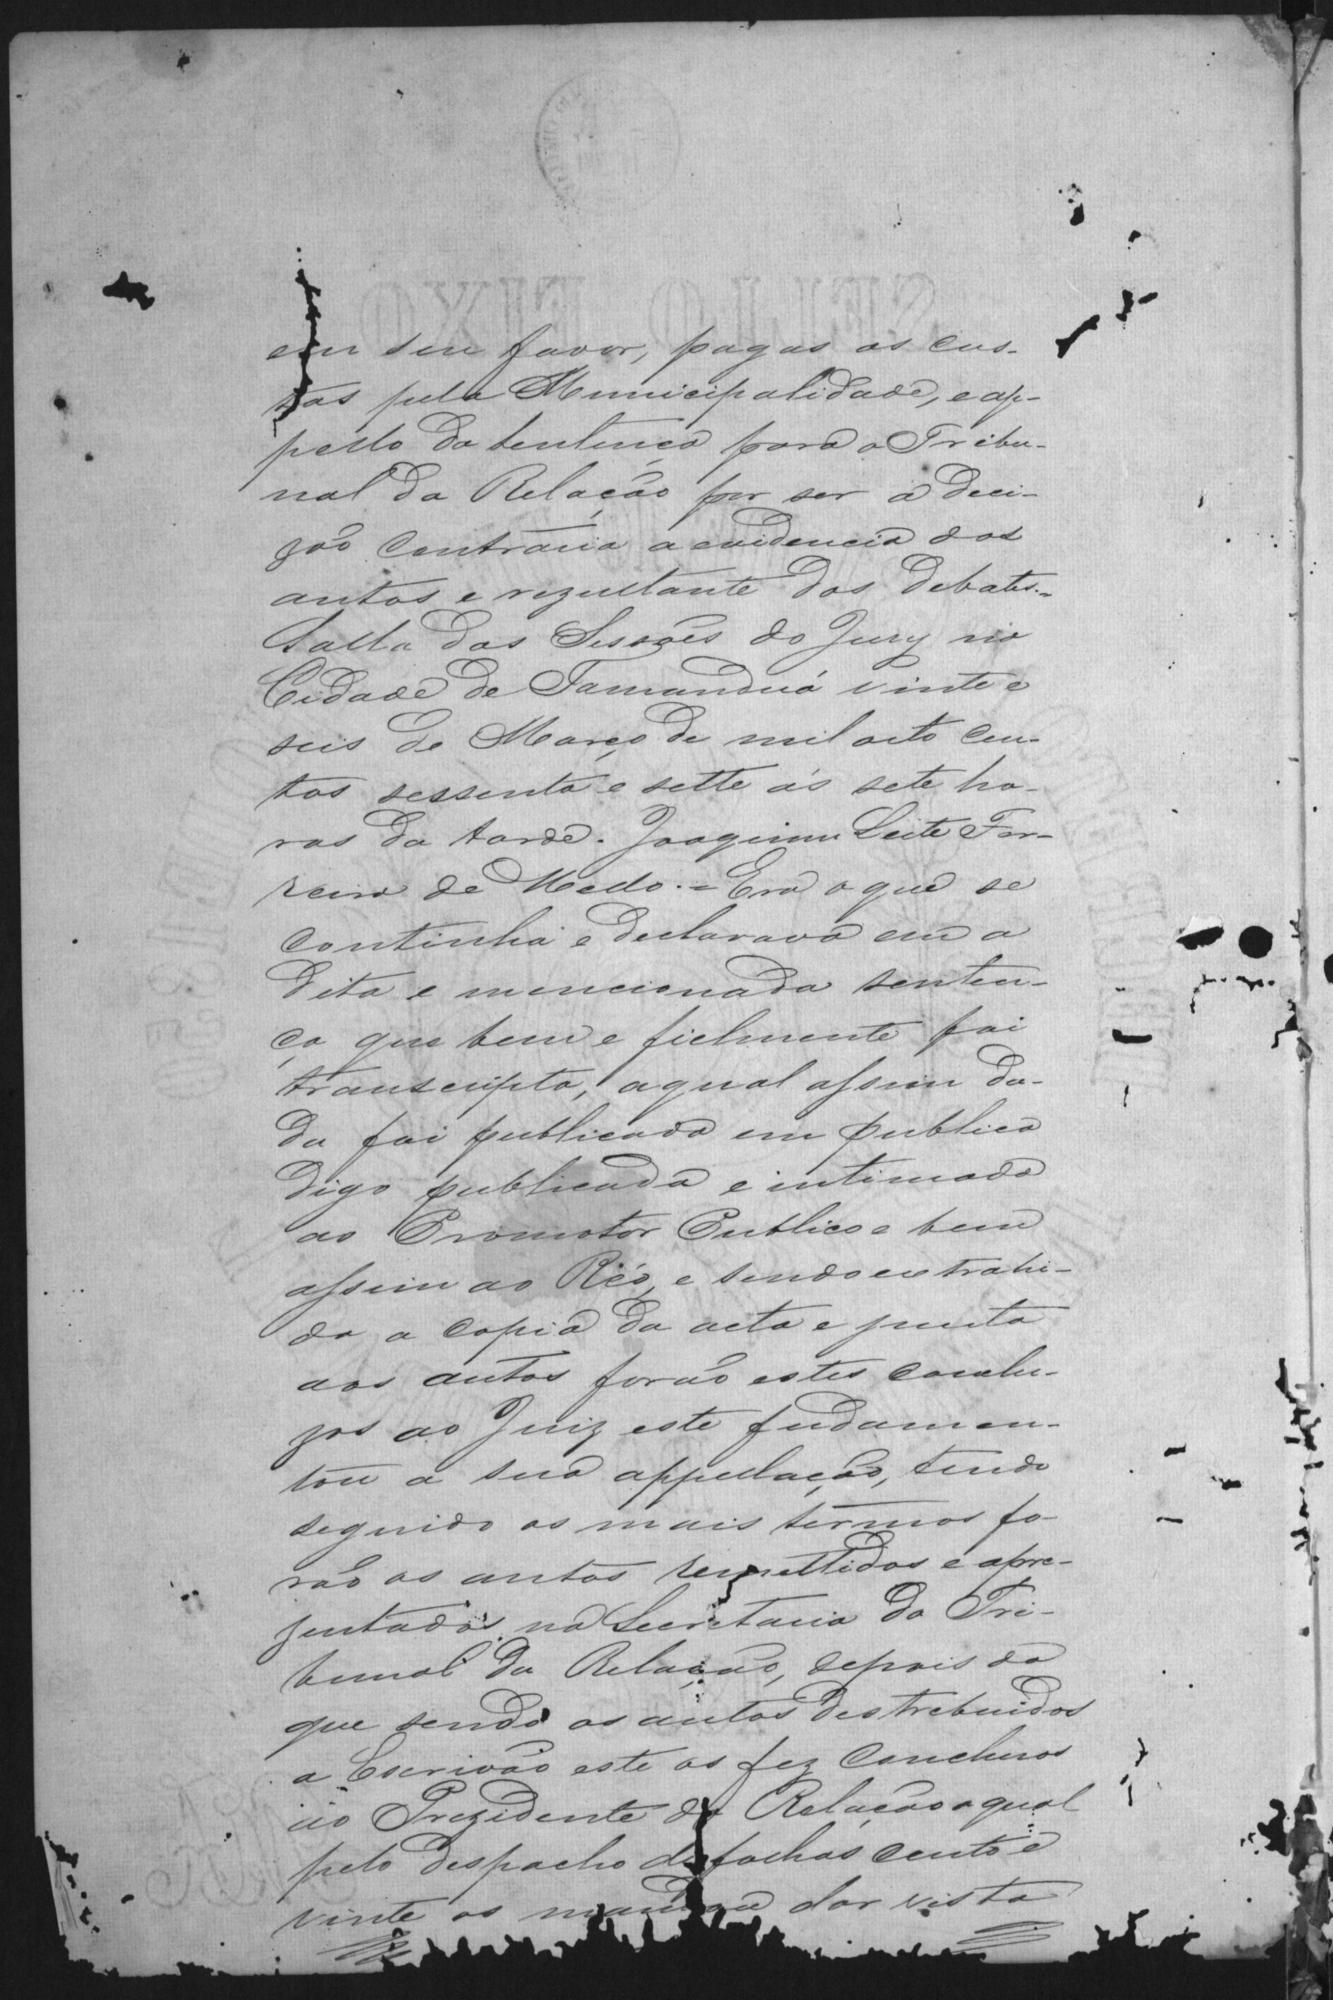 em seu favor, pagas as cus-
tas pela Municipalidade, e ap-
pello da sentença para o Tribu-
nal da Relação por ser a deci-
zão contraria a evidencia dos
autos e rezultante dos debates.=
Salla das Sessões do Jury na
Cidade de Tamanduá vinte e
seis de Março de mil oito cen-
tos sessenta e sette ás sete ho-
ras da tarde. Joaquim Leite Fer-
reira de Mello.= Era o que se
continha e declarava em a
dita e mencionada senten-
ça que bem e fielmente foi
transcripta, a qual assim da-
da foi publicada em publica
digo publicada e intimada
ao Promotor Publico e bem
assim ao Réo, e sendo extrahi-
da a copia da acta e junta
aos autos forão estes conclu-
zos ao Juiz este fudamen-
tou a sua appellação, tendo
seguido os mais termos fo-
rão os autos remettidos e apre-
zentados na Secretaria da Tri-
bunal da Relação, depois do
que sendo os autos destrebuidos
a Escrivão este os fez concluzos
ao Prezidente da Relação o qual
pelo despacho de folhas cento e
vinte os mandou dar vista
SELLO FIXO